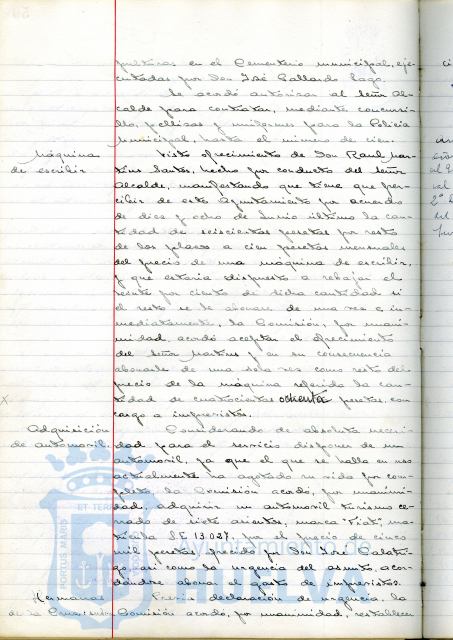 pulturas en el Cementerio municipal, eje-
cutadas por Don José Gallardo Lago.
Se acordó autorizar al Señor Al-
calde para contratar, mediante concursi-
llo, pellizas y uniformes para la Policia
Municipal, hasta el número de cien.
Máquina
de escribir
Visto ofrecimiento de Don Raul Mar-
tins Santos, hecho por conducto del Señor
Alcalde, manifestando que tiene que per-
cibir de este Ayuntamiento por acuerdo
de diez y ocho de Junio último la can-
tidad de seiscientas pesetas por resto
de los plazos a cien pesetas mensuales
del precio de una máquina de escribir,
y que estaria dispuesto a rebajar el
veinte por ciento de dicha cantidad si
el resto se le abonare de una vez e in-
mediatamente, la Comisión, por unani-
midad, acordó aceptar el ofrecimiento
del Señor Martins y en su consecuencia
abonarle de una sola vez como resto del
precio de la máquina referida la can-
tidad de cuatrocientas ochenta pesetas, con
cargo a imprevistos.
Adquisición
de automovil.
Considerando de absoluta necesi-
dad para el servicio disponer de un
automovil, ya que el que se halla en uso
actualmente ha agotado su vida por com-
pleto, la Comisión acordó, por unanimi-
dad, adquirir un automovil turismo ce-
rrado de siete asientos, marca "Fiat", ma-
tricula S.E. 13.027, por el precio de cinco
mil pesetas, ofrecido por Don José Calati-
go, asi como la urgencia del asunto, acor-
dandose abonar el gasto de imprevistos.
Hermanas
de la Cruz
Previa declaración de urgencia, la
Comisión acordó, por unanimidad, restablecer
PORTUS MARIS ET TERRAE
Ayuntamiento de
HUELVA